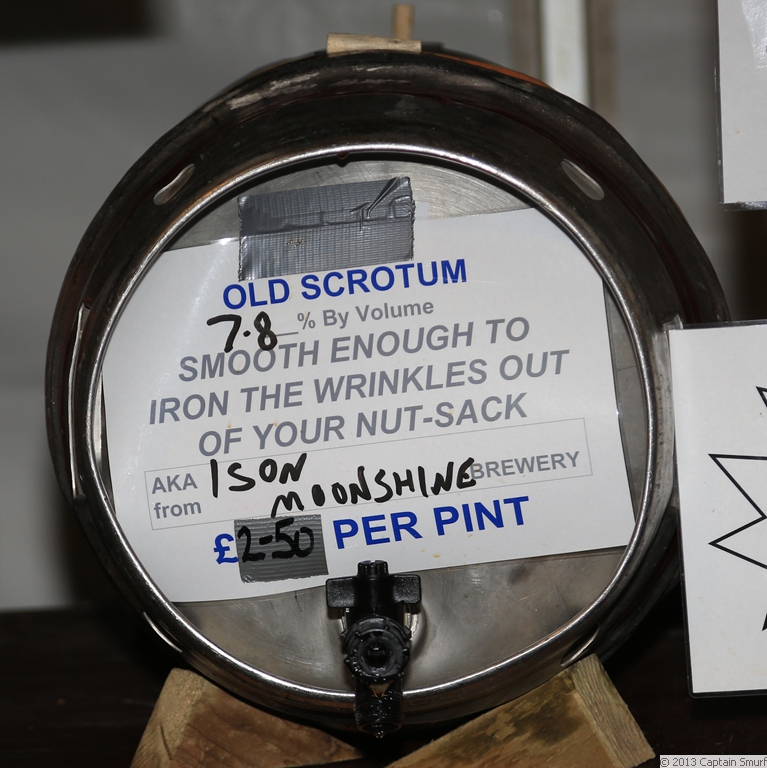 OLD SCROTUM
7.8 % By Volume
SMOOTH ENOUGH TO
IRON THE WRINKLES OUT
OF YOUR NUT-SACK
AKA ISON
from MOONSHINE BREWERY
£2-50 PER PINT
© 2013 Captain Smurf